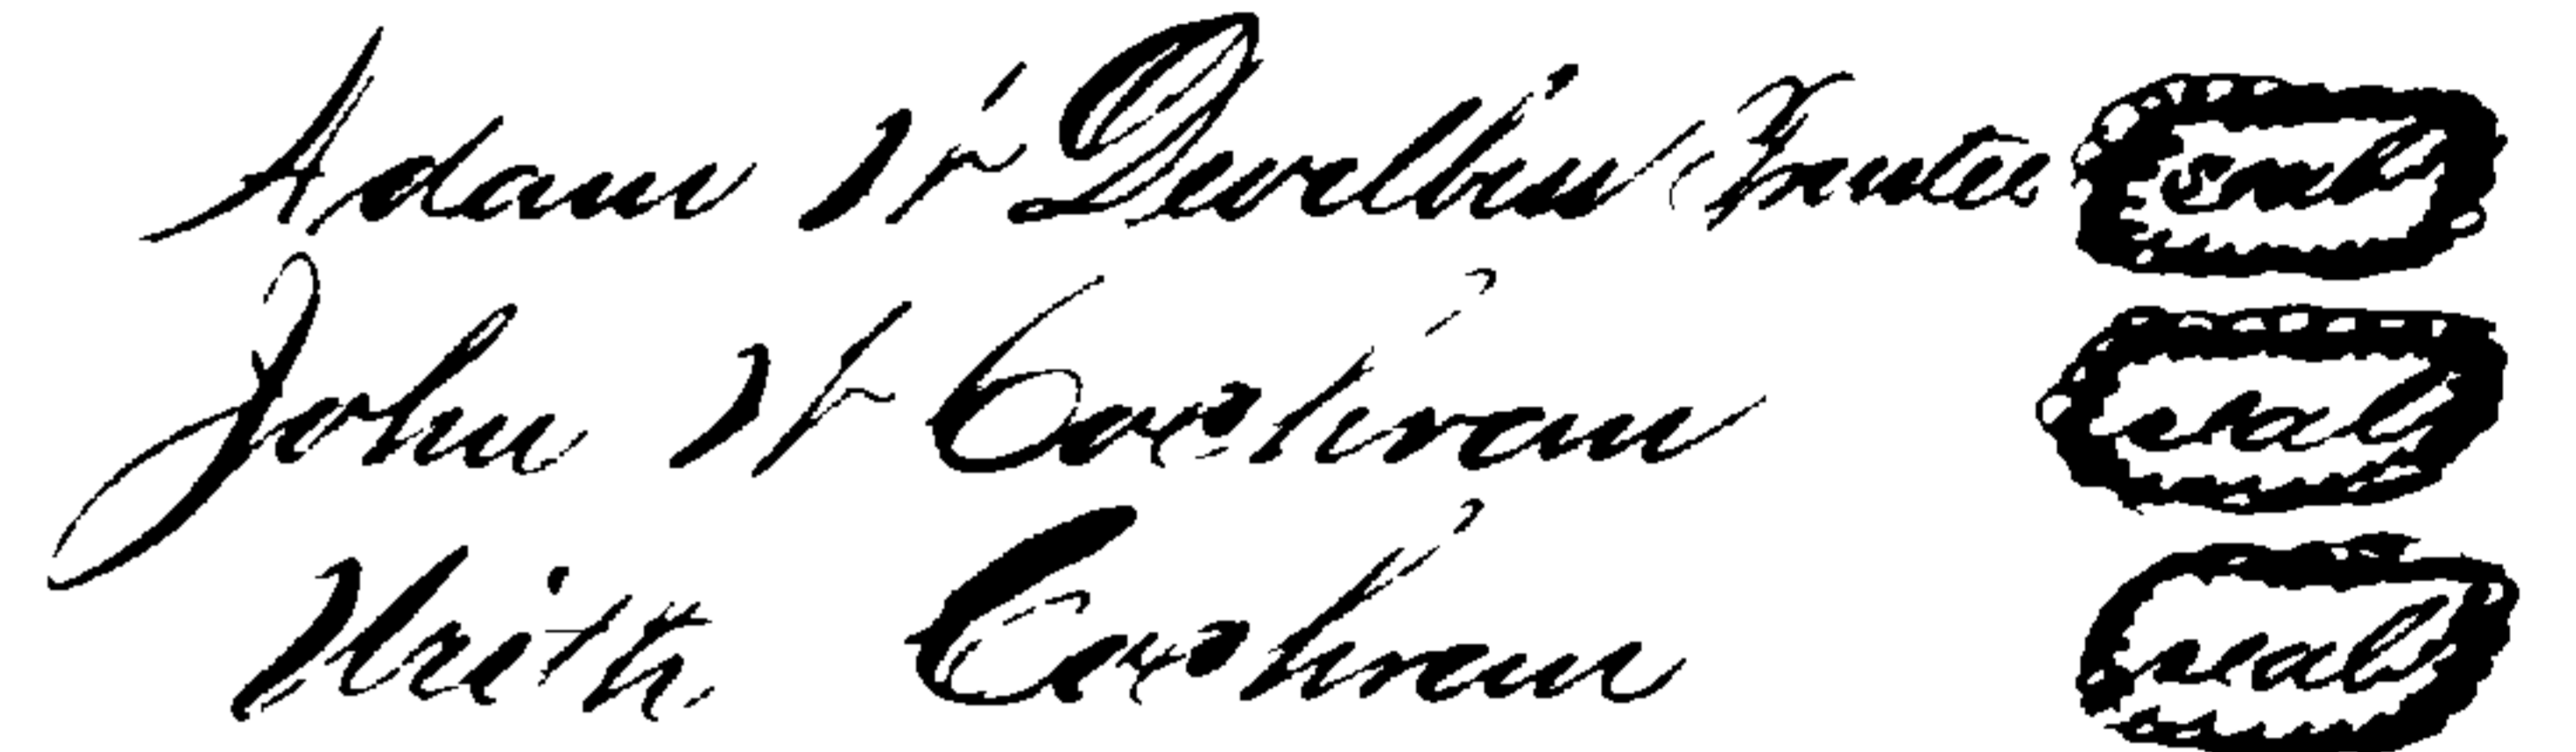 Adam H Devilbiss Trustee seal
John H Cochran seal
Urith Cochran seal